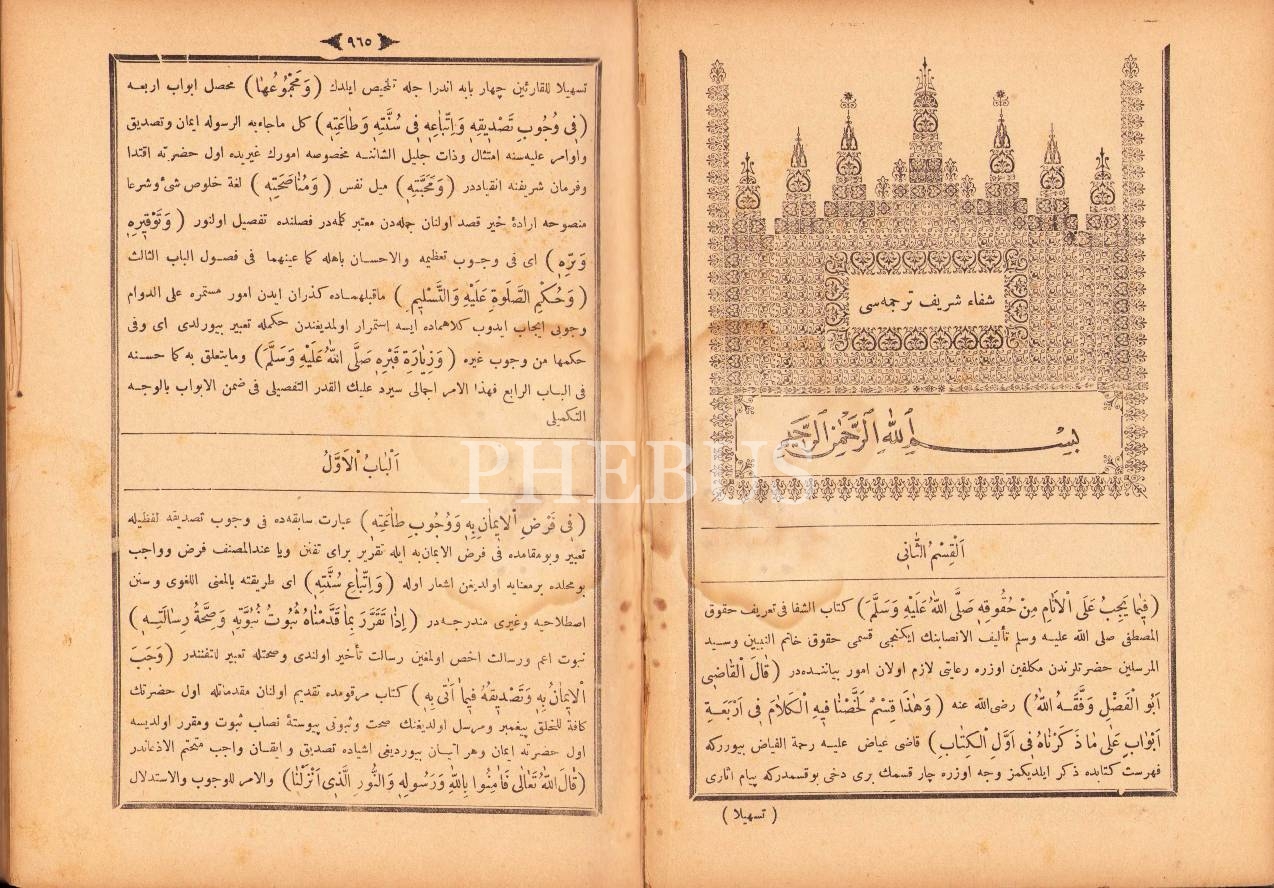 شفاء شریف ترجمه‌سی
بِسْمِ اللهِ الرَّحْمٰنِ الرَّحِيمِ
اَلْقِسْمُ الثَّانِى
( فِيمَا يَجِبُ عَلَى الْاَنَامِ مِنْ حُقُوقِهِ صَلَّى اللهُ عَلَيْهِ وَسَلَّمَ ) كتاب الشفا فى تعريف حقوق
المصطفى صلى الله عليه وسلم تأليف الانصابنك ايكنجى قسمى حقوق خاتم النبيين وسيد
المرسلين حضرتلرندن مكلفين اوزره رعايتى لازم اولان امور بياننده‌در ( قَالَ الْقَاضِى
اَبُو الْفَضْلِ وَفَّقَهُ اللهُ ) رضى الله عنه ( وَهٰذَا قِسْمٌ لَخَّصْنَا فِيهِ الْكَلَامَ فِى اَرْبَعَةِ
اَبْوَابٍ عَلَى مَا ذَكَرْنَاهُ فِى اَوَّلِ الْكِتَابِ ) قاضى عياض عليه رحمة الفياض بيوررکه
فهرست كتابده ذكر ايلديكمز وجه اوزره چار قسمك برى دخى بوقسمدركه پيام آثارى
( تسهيلا )
٩٦٥
تسهيلا للقارئين چهار بابه اندرا جله تلخيص ايلدك ( وَمَجْمُوعُهَا ) محصل ابواب اربعه
( فِى وُجُوبِ تَصْدِيقِهِ وَاِتِّبَاعِهِ فِى سُنَّتِهِ وَطَاعَتِهِ ) كل ماجاءبه الرسوله ايمان وتصديق
واوامر عليه‌سنه امتثال وذات جليل الشاننه مخصوصه امورك غيريده اول حضرته اقتدا
وفرمان شريفنه انقياددر ( وَمَحَبَّتِهِ ) ميل نفس ( وَمُنَاصَحَتِهِ ) لغة خلوص شئ وشرعا
منصوحه ارادۀ خير قصد اولنان جمله‌دن معتبر كلمه‌در فصلنده تفصيل اولنور ( وَتَوْقِيرِهِ
وَبِرِّهِ ) اى فى وجوب تعظيمه والاحسان باهله كما عينهما فى فصول الباب الثالث
( وَحُكْمِ الصَّلٰوةِ عَلَيْهِ وَالتَّسْلِيمِ ) ماقبلهماده گذران ايدن امور مستمره على الدوام
وجوبى ايجاب ايدوب كلاهماده ايسه استمرار اولمديغندن حكمله تعبير بيورلدى اى وفى
حكمها من وجوب غيره ( وَزِيَارَةِ قَبْرِهِ صَلَّى اللهُ عَلَيْهِ وَسَلَّمَ ) ومايتعلق به كما حسنه
فى الباب الرابع فهذا الامر اجمالى سيرد عليك القدر التفصيلى فى ضمن الابواب بالوجه
التكميلى
اَلْبَابُ الْاَوَّلُ
( فِى فَرْضِ الْاِيمَانِ بِهِ وَوُجُوبِ طَاعَتِهِ ) عبارت سابقه‌ده فى وجوب تصديقه لفظيله
تعبير وبومقامده فى فرض الايمان‌به ايله تقرير براى تفنن ويا عندالمصنف فرض وواجب
بومحلده برمعنايه اولديغن اشعار اوله ( وَاِتِّبَاعِ سُنَّتِهِ ) اى طريقته بالمعنى اللغوى وسنن
اصطلاحيه وغيرى مندرجه‌در ( اِذَا تَقَرَّرَ بِمَا قَدَّمْنَاهُ ثُبُوتُ نُبُوَّتِهِ وَصِحَّةُ رِسَالَتِهِ )
نبوت اعم ورسالت اخص اولمغين رسالت تأخير اولندى وصحتله تعبير لاتفنندر ( وَجَبَ
الْاِيمَانُ بِهِ وَتَصْدِيقُهُ فِيمَا اَتَى بِهِ ) كتاب مرقومده تقديم اولنان مقدماتله اول حضرتك
كافة للخلق پيغمبر ومرسل اولديغنك صحت وثبوتى پيوستۀ نصاب ثبوت ومقرر اولديسه
اول حضرته ايمان وهر اتيان بيورديغى اشياده تصديق و ايقان واجب متحتم الاذعاندر
( قَالَ اللهُ تَعَالٰى فَاٰمِنُوا بِاللهِ وَرَسُولِهِ وَالنُّورِ الَّذِى اَنْزَلْنَا ) والامر للوجوب والاستدلال
PHEBUS